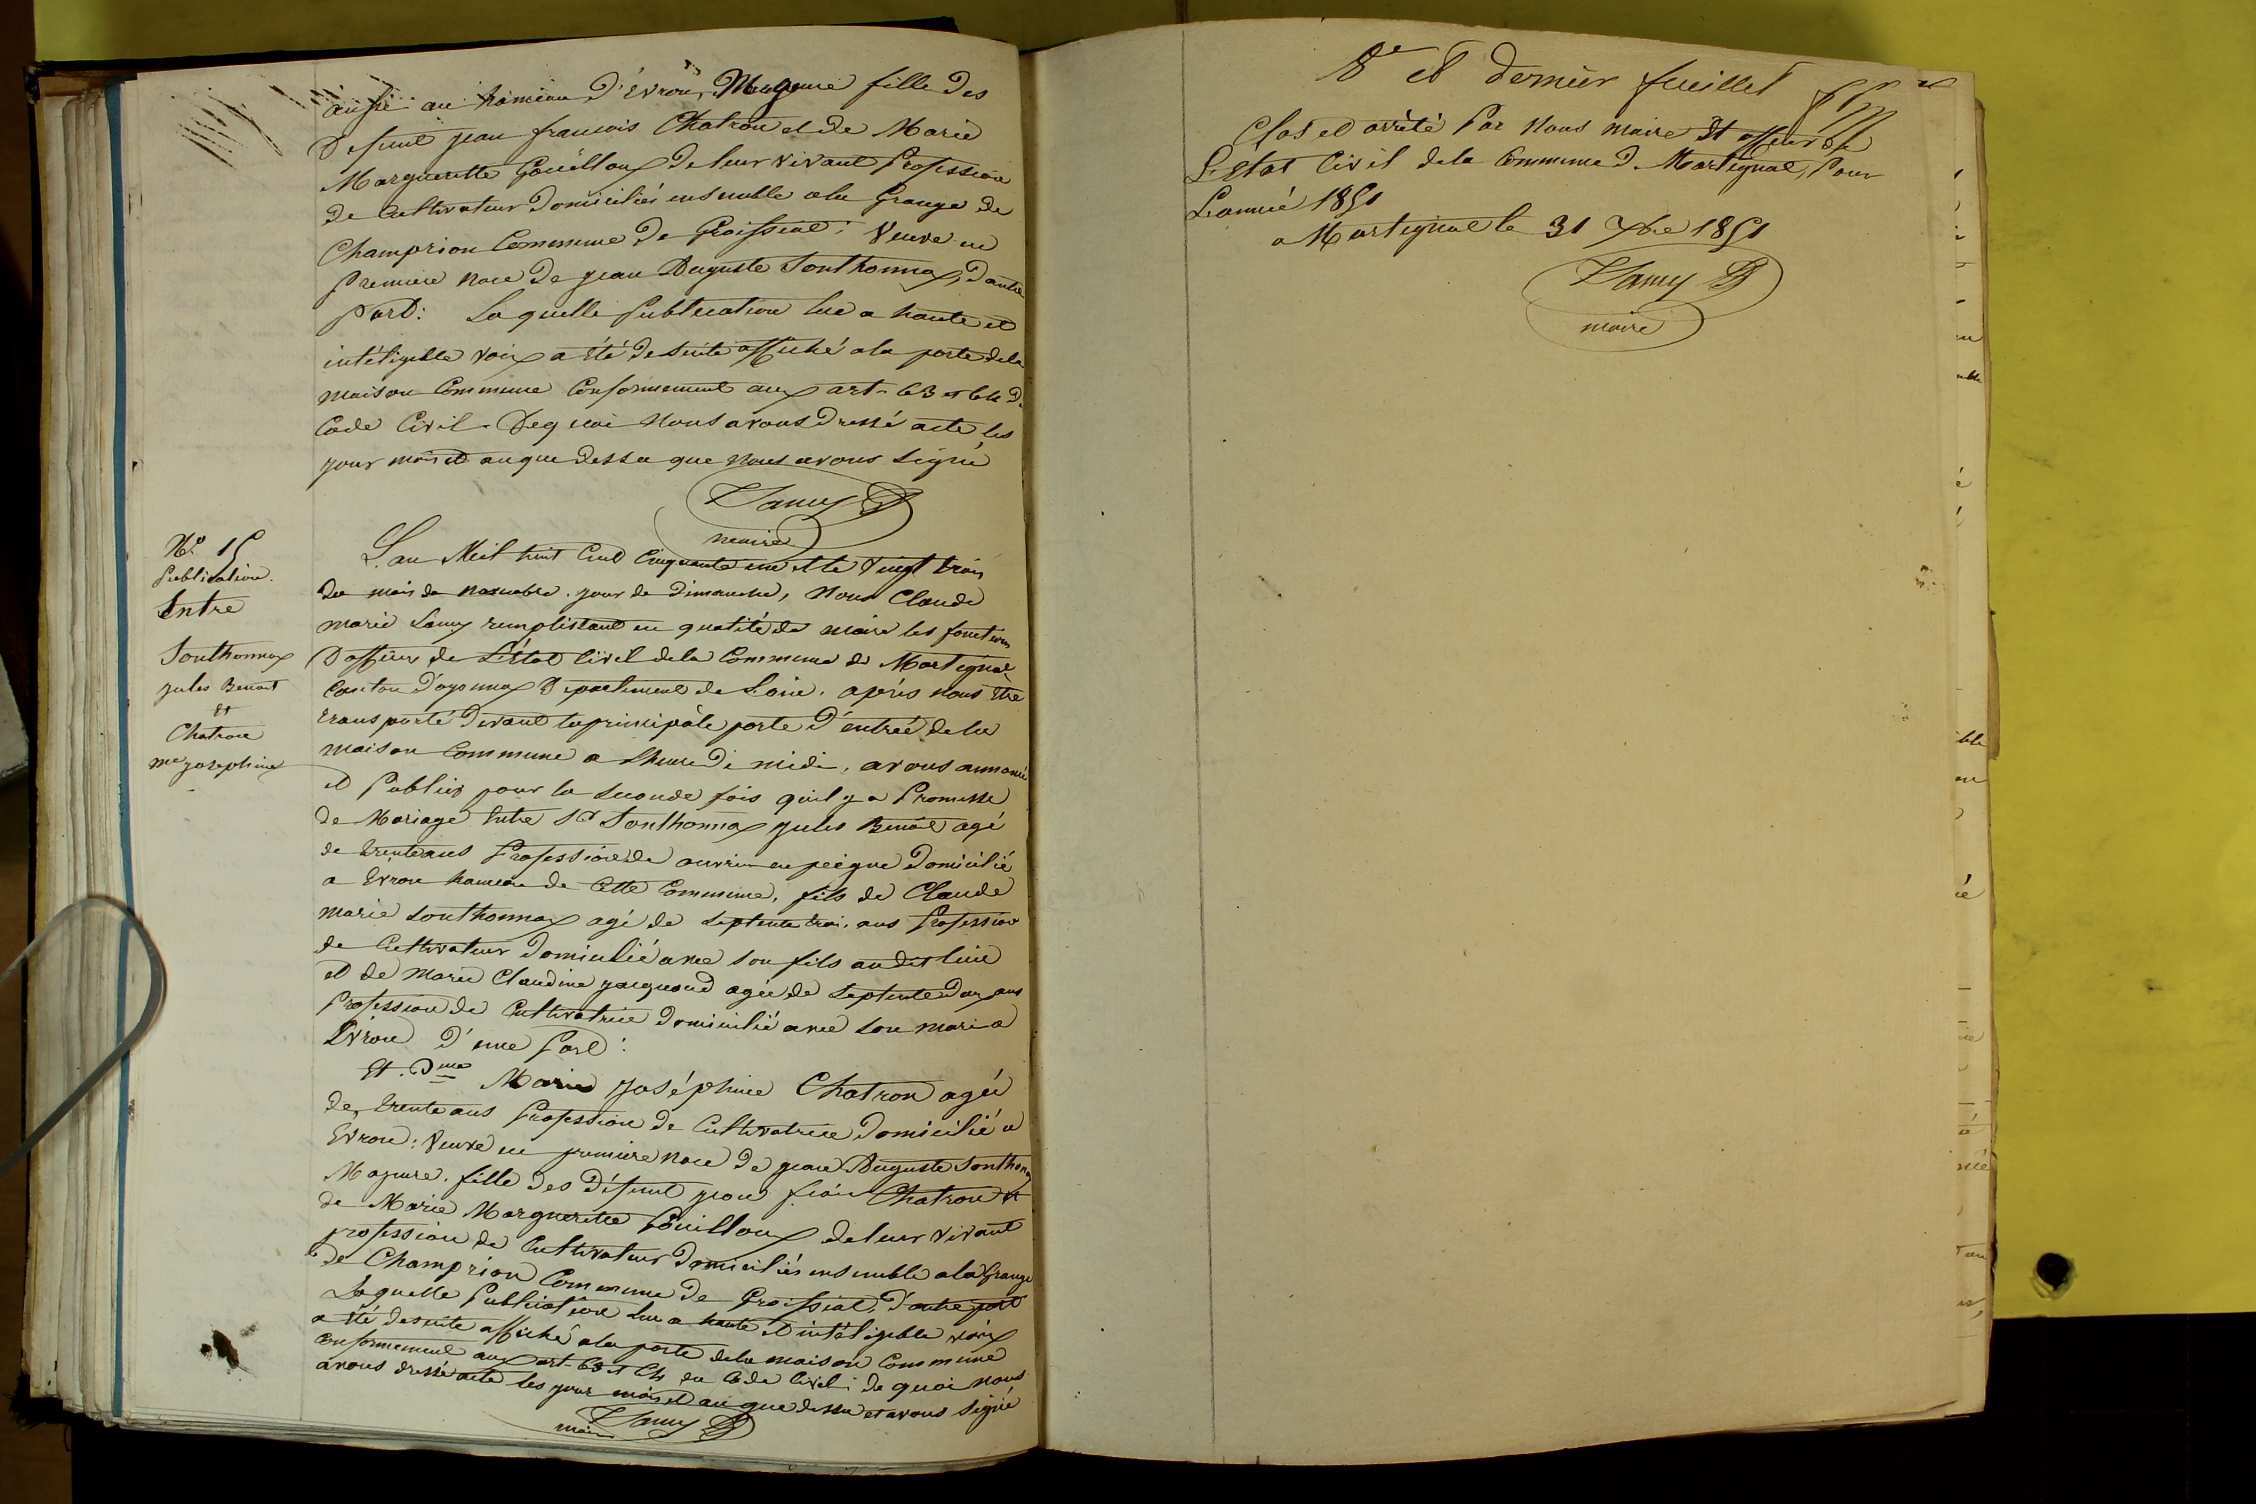 aussi au hameau d'Evron, Majeure fille des
Defunt jean francois Chatron et de Marie
Marguerite Gouilloux de leur vivant Profession
de Cultivateur Domiciliés ensemble a la Grange de
Champrion Commune de Groissiat ; Veuve en
Premiere noce de jean Auguste Sonthonnax, d'autre
Part : Laquelle Publication lue a haute et
intéligible voix a été de suite affiché a la porte de la
maison Commune Conformement aux art. 63 et 64 du
Code Civil. De quoi Nous avons Dressé acte les
jour mois et an que dessu que Nous avons Signé
Lamy
maire
No. 15
Publication.
Entre
Sonthonnax
jules Benoit
et
Chatron
me josephine
L'an Mil huit Cent Cinquante un et le Vingt trois
du mois de novembre. jour de Dimanche, Nous Claude
marie Lamy remplissant en qualité de maire les fonctions
D'officier de L'Etat Civil de la Commune de Martignat
Canton d'oyonnax Département de L'ain. après nous être
transporté devant la principale porte d'entrée de la
maison Commune a L'heure de midi, avons annoncé
et Publier pour la Seconde fois qu'il y a Promesse
de Mariage Entre Sr Sonthonnax jules Benoit agé
de trente ans Profession de ouvrier en peigne Domicilié
a Evron hameau de Cette Commune, fils de Claude
marie Sonthonnax agé de Septente trois ans Profession
de Cultivateur Domicilié avec Son fils audit lieu
et de Marie Claudine jacquand agée de Septente Deux ans
Profession de Cultivatrice Domicilié avec Son mari a
Evron d'une Part :
Et. Dme Marie joséphine Chatron agée
de trente ans Profession de Cultivatrice Domicilié a
Evron : Veuve en premiere noce De jean Auguste Sonthonnax
Majeure. fille des Défunt jean fcois Chatron et
de Marie Marguerite Gouilloux de leur vivant
profession de Cultivateur Domiciliés ensemble a la Grange
de Champrion Commune de Groissiat, d'autre part
Laquelle Publication lue a haute et intéligible voix
a été de suite affiché a la porte de la maison Commune
Conformement aux art. 63 et 64 du Code Civil : de quoi Nous
avons dressé acte les jour mois et an que dessu et avons Signé
Lamy
maire
8e et dernier feuillet
Clos et arrêté Par Nous maire Et officier de
L'Etat Civil de la Commune de Martignat, Pour
L'année 1851
a Martignat le 31 Xbre 1851
Lamy
maire